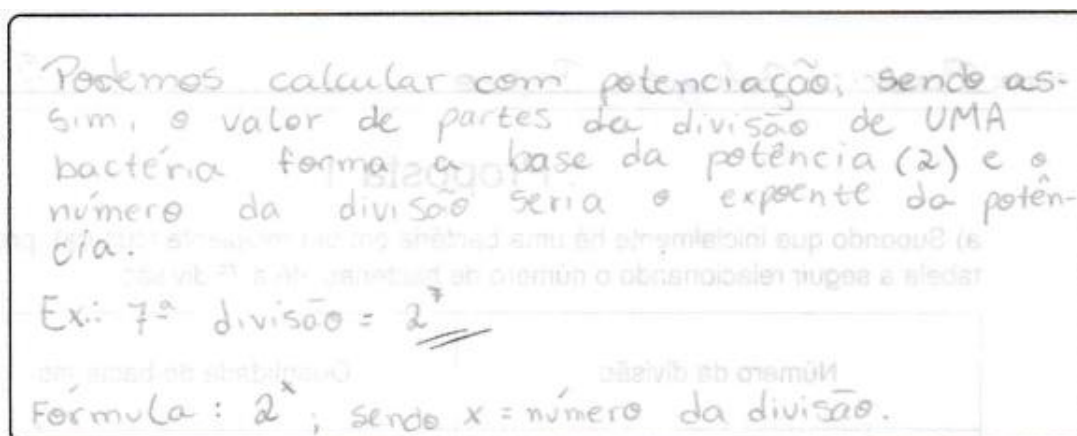 Podemos calcular com potenciação, sendo as-
sim, o valor de partes da divisão de UMA
bactéria forma a base da potência (2) e o
número da divisão seria o expoente da potên-
cia.
Ex.: 7ª divisão = 2⁷
Fórmula: 2ˣ, sendo x = número da divisão.